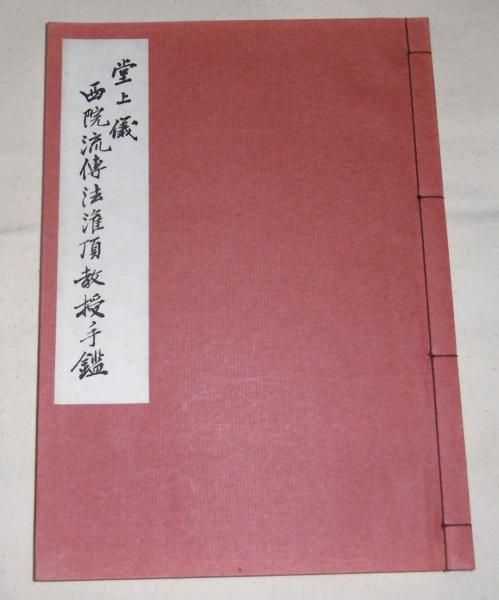 堂上儀
西院流傳法滙頂教授手鑑